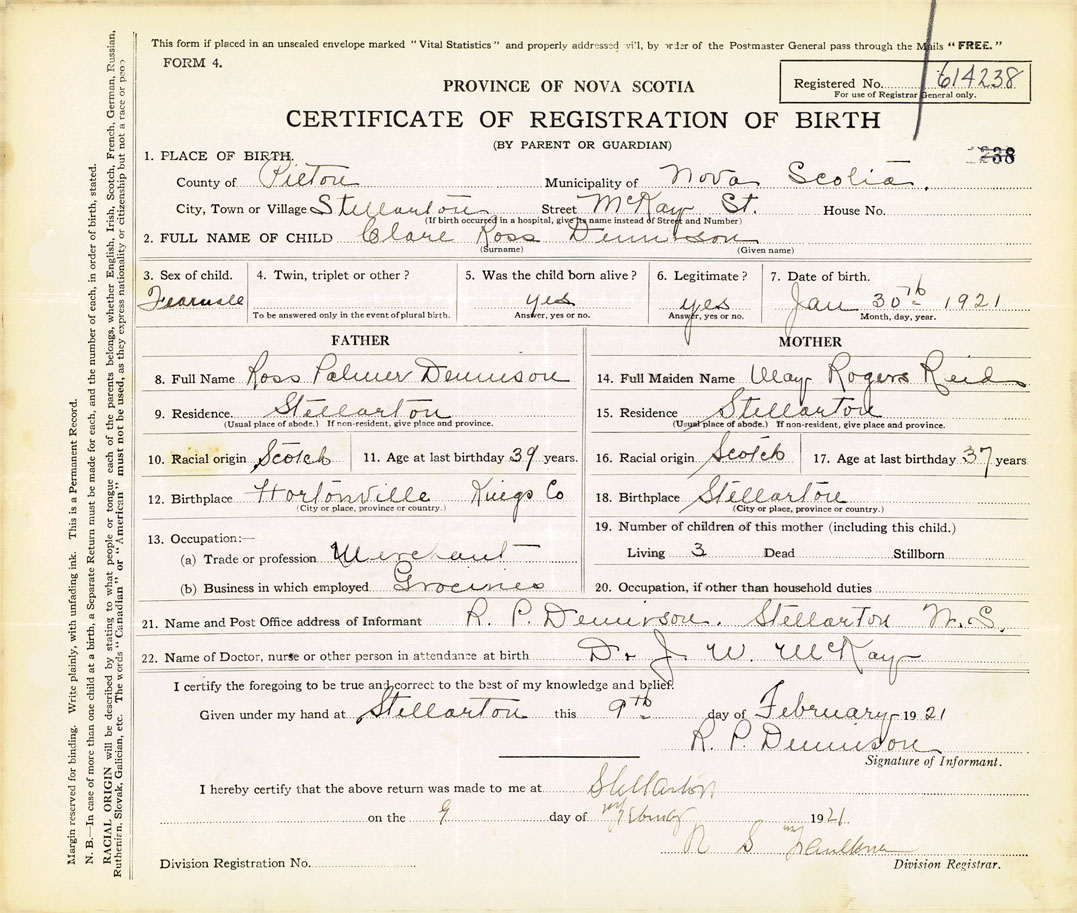 This form if placed in an unsealed envelope marked "Vital Statistics" and properly addressed will, by order of the Postmaster General pass through the Mails "FREE."
FORM 4.
Registered No. 614238
For use of Registrar General only.
PROVINCE OF NOVA SCOTIA
CERTIFICATE OF REGISTRATION OF BIRTH
(BY PARENT OR GUARDIAN)
238
1. PLACE OF BIRTH.
County of Pictou Municipality of Nova Scotia.
City, Town or Village Stellarton Street McKay St. House No.
(If birth occurred in a hospital, give its name instead of Street and Number)
2. FULL NAME OF CHILD Clare Ross Dennison
(Surname) (Given name)
3. Sex of child. 4. Twin, triplet or other? 5. Was the child born alive? 6. Legitimate? 7. Date of birth.
Fearmale yes yes Jan 30th 1921
To be answered only in the event of plural birth. Answer, yes or no. Answer, yes or no. Month, day, year.
FATHER
8. Full Name Ross Palmer Dennison
9. Residence. Stellarton
(Usual place of abode.) If non-resident, give place and province.
10. Racial origin Scotch 11. Age at last birthday 39 years.
12. Birthplace Hortonville Kings Co
(City or place, province or country.)
13. Occupation:—
(a) Trade or profession Merchant
(b) Business in which employed Groceries
MOTHER
14. Full Maiden Name May Rogers Reid
15. Residence Stellarton
(Usual place of abode.) If non-resident, give place and province.
16. Racial origin Scotch 17. Age at last birthday 37 years
18. Birthplace Stellarton
(City or place, province or country.)
19. Number of children of this mother (including this child.)
Living 3 Dead Stillborn
20. Occupation, if other than household duties
21. Name and Post Office address of Informant R. P. Dennison. Stellarton N.S.
22. Name of Doctor, nurse or other person in attendance at birth Dr J. W. McKay
I certify the foregoing to be true and correct to the best of my knowledge and belief.
Given under my hand at Stellarton this 9th day of February 1921
R. P. Dennison
Signature of Informant.
I hereby certify that the above return was made to me at Stellarton
on the 9 day of February 1921.
R S Faulkner
Division Registration No. Division Registrar.
Margin reserved for binding. Write plainly, with unfading ink. This is a Permanent Record.
N. B.—In case of more than one child at a birth, a Separate Return must be made for each, and the number of each, in order of birth, stated.
RACIAL ORIGIN will be described by stating to what people or tongue each of the parents belongs, whether English, Irish, Scotch, French, German, Russian,
Ruthenian, Slovak, Galician, etc. The words "Canadian" or "American" must not be used, as they express nationality or citizenship but not a race or peop